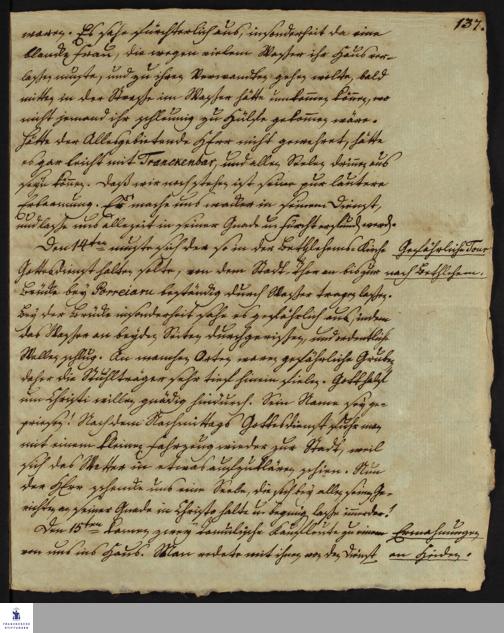 137.
waren. Es sahe fürchterlich aus, insonderheit da eine
blinde Frau, die wegen vielem Wasser ihr Haus ver-
lassen muste, und zu ihren Verwandten gehen wolte, bald
mitten in der Strasse im Wasser hätte umkommen können, wo
nicht jemand ihr schleunig zu Hülfe gekommen wäre.
Hätte der Allesgebietende HErr nicht gewehret, hätte
es gar leicht mit Tranckenbar, und allen Seelen drinnen aus
seyn können. Daß wir noch stehen ist seine pur lautere
Erbarmung. Er mache uns wacker in seinem Dienst,
und lasse uns allezeit in seiner Gnade und Furcht erfunden werden.
Den 14ten muste sich der so in der Bethlehems-Kirche
Gefährliche Tour
nach Bethlehem.
Gottesdienst halten solte, von dem Stadt-Thor an bis zur
Brücke bey Porreiaru beständig durch Wasser tragen lassen.
Bey der Brücke insonderheit sahe es gefährlich aus, indem
das Wasser an beyden Seiten durchgerissen, und ordentliche
Wellen schlug. An manchen Orten waren gefährliche Gruben
daher die Stuhlträger sehr tief hinein fielen. Gott half
um Christi willen gnädig hindurch. Sein Name sey ge-
priesen! Nach dem Nachmittags Gottesdienst fuhr man
mit einem kleinen Fahrzeug wieder zur Stadt, weil
sich das Wetter in etwas aufzuklären schien. Nun
der HErr schencke uns eine Seele, die sich bey allen seinen Ge-
richten an seiner Gnade in Christo halte und begnügen lasse immerdar!
Den 15ten kamen zwey Tamulische Kaufleute zu einem
Ermahnungen
an Heiden.
von uns ins Haus. Man redete mit ihnen von dem Dienst
FRANCKESCHE
STIFTUNGEN